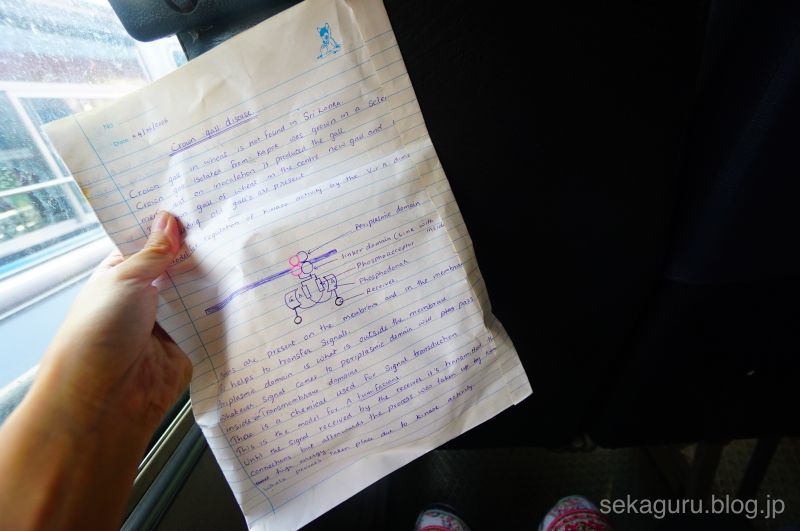 No
Date
Crown gall disease
Crown gall in wheat is not found in Sri Lanka.
Crown gall isolated from Kapok was grown in a
and on inoculation it produced the gall
gall of wheat in the centre new gall and
old gall's are present
regulation of kinase activity by the Vir A
Periplasmic domain
linker domain (Link with
Phosphoreceptor inside
Phosphodonar
Receiver
are present on the membrane and in the membran
helps to transfer signals.
Periplasmic domain is what is outside the membrane
Whatever signal comes to periplasmic domain will pass
inside Transmembrane domains.
There is a chemical used for signal transduction
This is the model for A. tumfacians
Until the signal received by the receiver it's transmitted
connections but afterwards the process was taken up by
whole process taken place due to kinase activity.
sekaguru.blog.jp